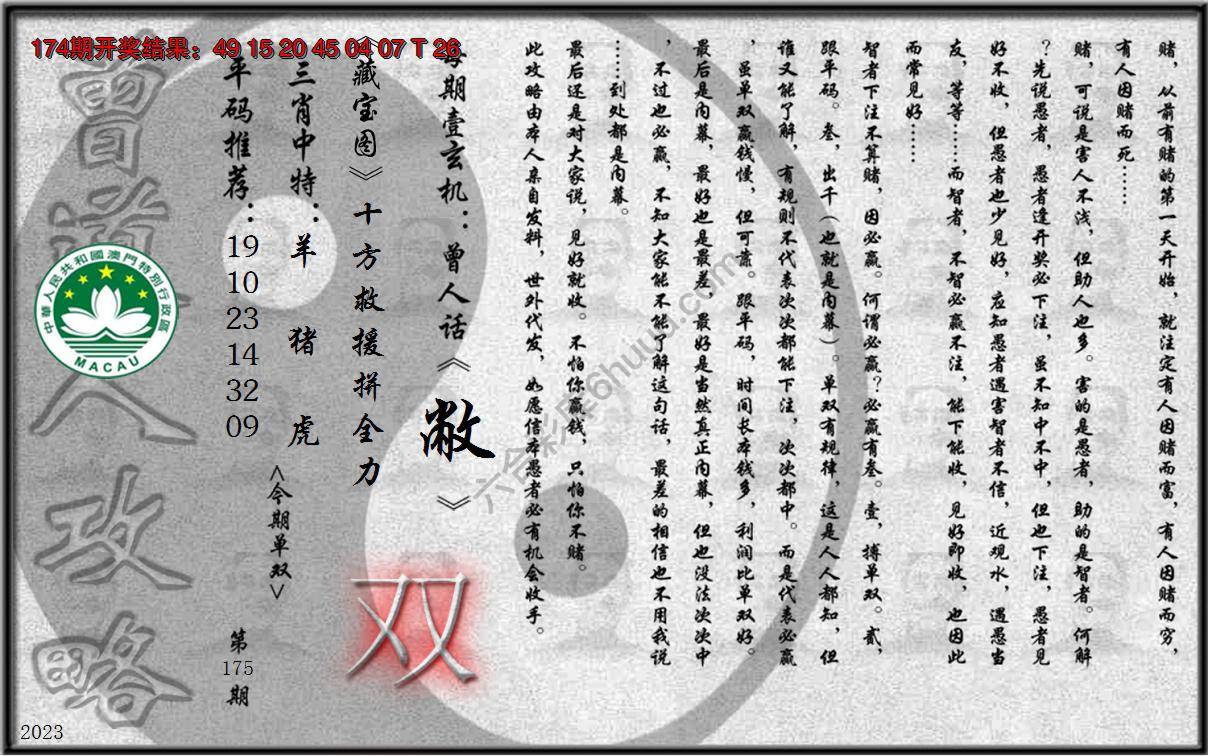 174期开奖结果：49 15 20 45 04 07 T 26
赌，从前有赌的第一天开始，就注定有人因赌而富，有人因赌而穷，
有人因赌而死……
赌，可说是害人不浅，但助人也多。害的是愚者，助的是智者。何解
？先说愚者，愚者逢开奖必下注，虽不知中不中，但也下注，愚者见
好不收，但愚者也少见好，应知愚者遇害智者不信，近观水，遇愚当
友，等等……而智者，不智必赢不注，能下能收，见好即收，也因此
而常见好……
智者下注不算赌，因必赢。何谓必赢？必赢有叁。壹，搏单双。贰，
跟平码。叁，出千（也就是内幕）。单双有规律，这是人人都知，但
谁又能了解，有规则不代表次次都能下注，次次都中。而是代表必赢
，虽单双赢钱慢，但可靠。跟平码，时间长本钱多，利润比单双好。
最后是内幕，最好也是最差，最好是当然真正内幕，但也没法次次中
，不过也必赢，不知大家能不能了解这句话，最差的相信也不用我说
……到处都是内幕。
最后还是对大家说，见好就收。不怕你赢钱，只怕你不赌。
此攻略由本人亲自发料，世外代发，如愿信本愚者必有机会收手。
每期壹玄机：曾人话《敝》
《藏宝图》十方救援拼全力
三肖中特：羊 猪 虎
平码推荐：19 10 23 14 32 09
<今期单双>
双
第175期
曾道人攻略
中華人民共和國澳門特別行政區
MACAU
六合彩图库6huuu.com
2023